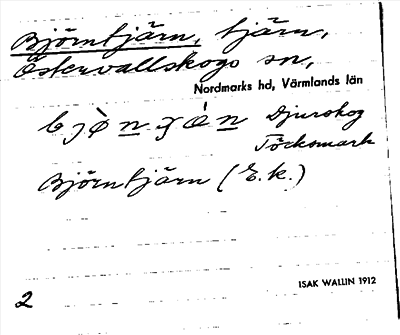 Björntjärn, tjärn,
Östervallskogs sn,
Nordmarks hd, Värmlands län
Djurskog
Töcksmark
Björntjärn (E.k.)
ISAK WALLIN 1912
2